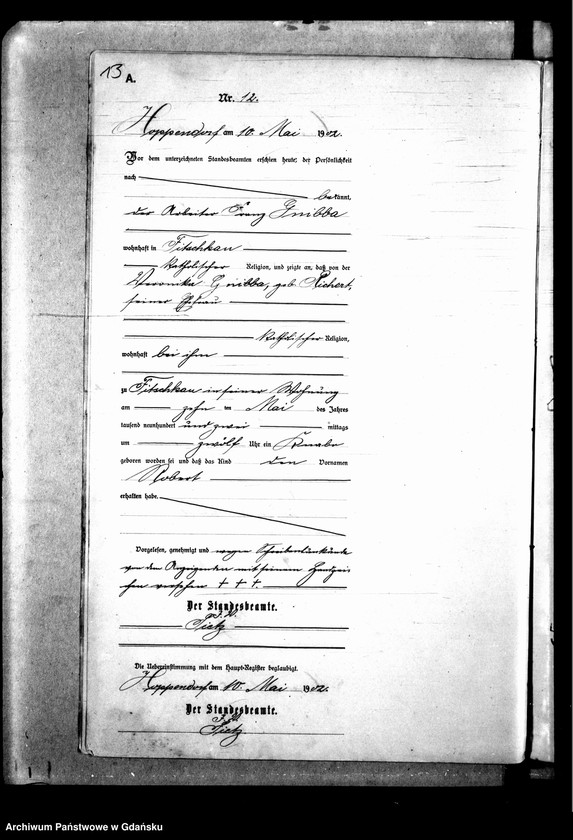 13 A.
Nr. 12.
Hoppendorf am 10. Mai 1902.
Vor dem unterzeichneten Standesbeamten erschien heute, der Persönlichkeit
nach
bekannt,
der Arbeiter Franz Gnibba
wohnhaft in Fitschkau
katholischer Religion, und zeigte an, daß von der
Veronika Gnibba, geb. Richert,
seiner Ehefrau
katholischer Religion,
wohnhaft bei ihm
zu Fitschkau in seiner Wohnung
am zehn ten Mai des Jahres
tausend neunhundert und zwei mittags
um zwölf Uhr ein Knabe
geboren worden sei und daß das Kind den Vornamen
Robert
erhalten habe.
Vorgelesen, genehmigt und wegen Schreibensunkunde
von dem Anzeigenden mit seinem Handzei-
chen versehen + + +.
Der Standesbeamte.
Tietz
Die Uebereinstimmung mit dem Haupt-Register beglaubigt.
Hoppendorf am 10. Mai 1902.
Der Standesbeamte.
Tietz
Archiwum Państwowe w Gdańsku